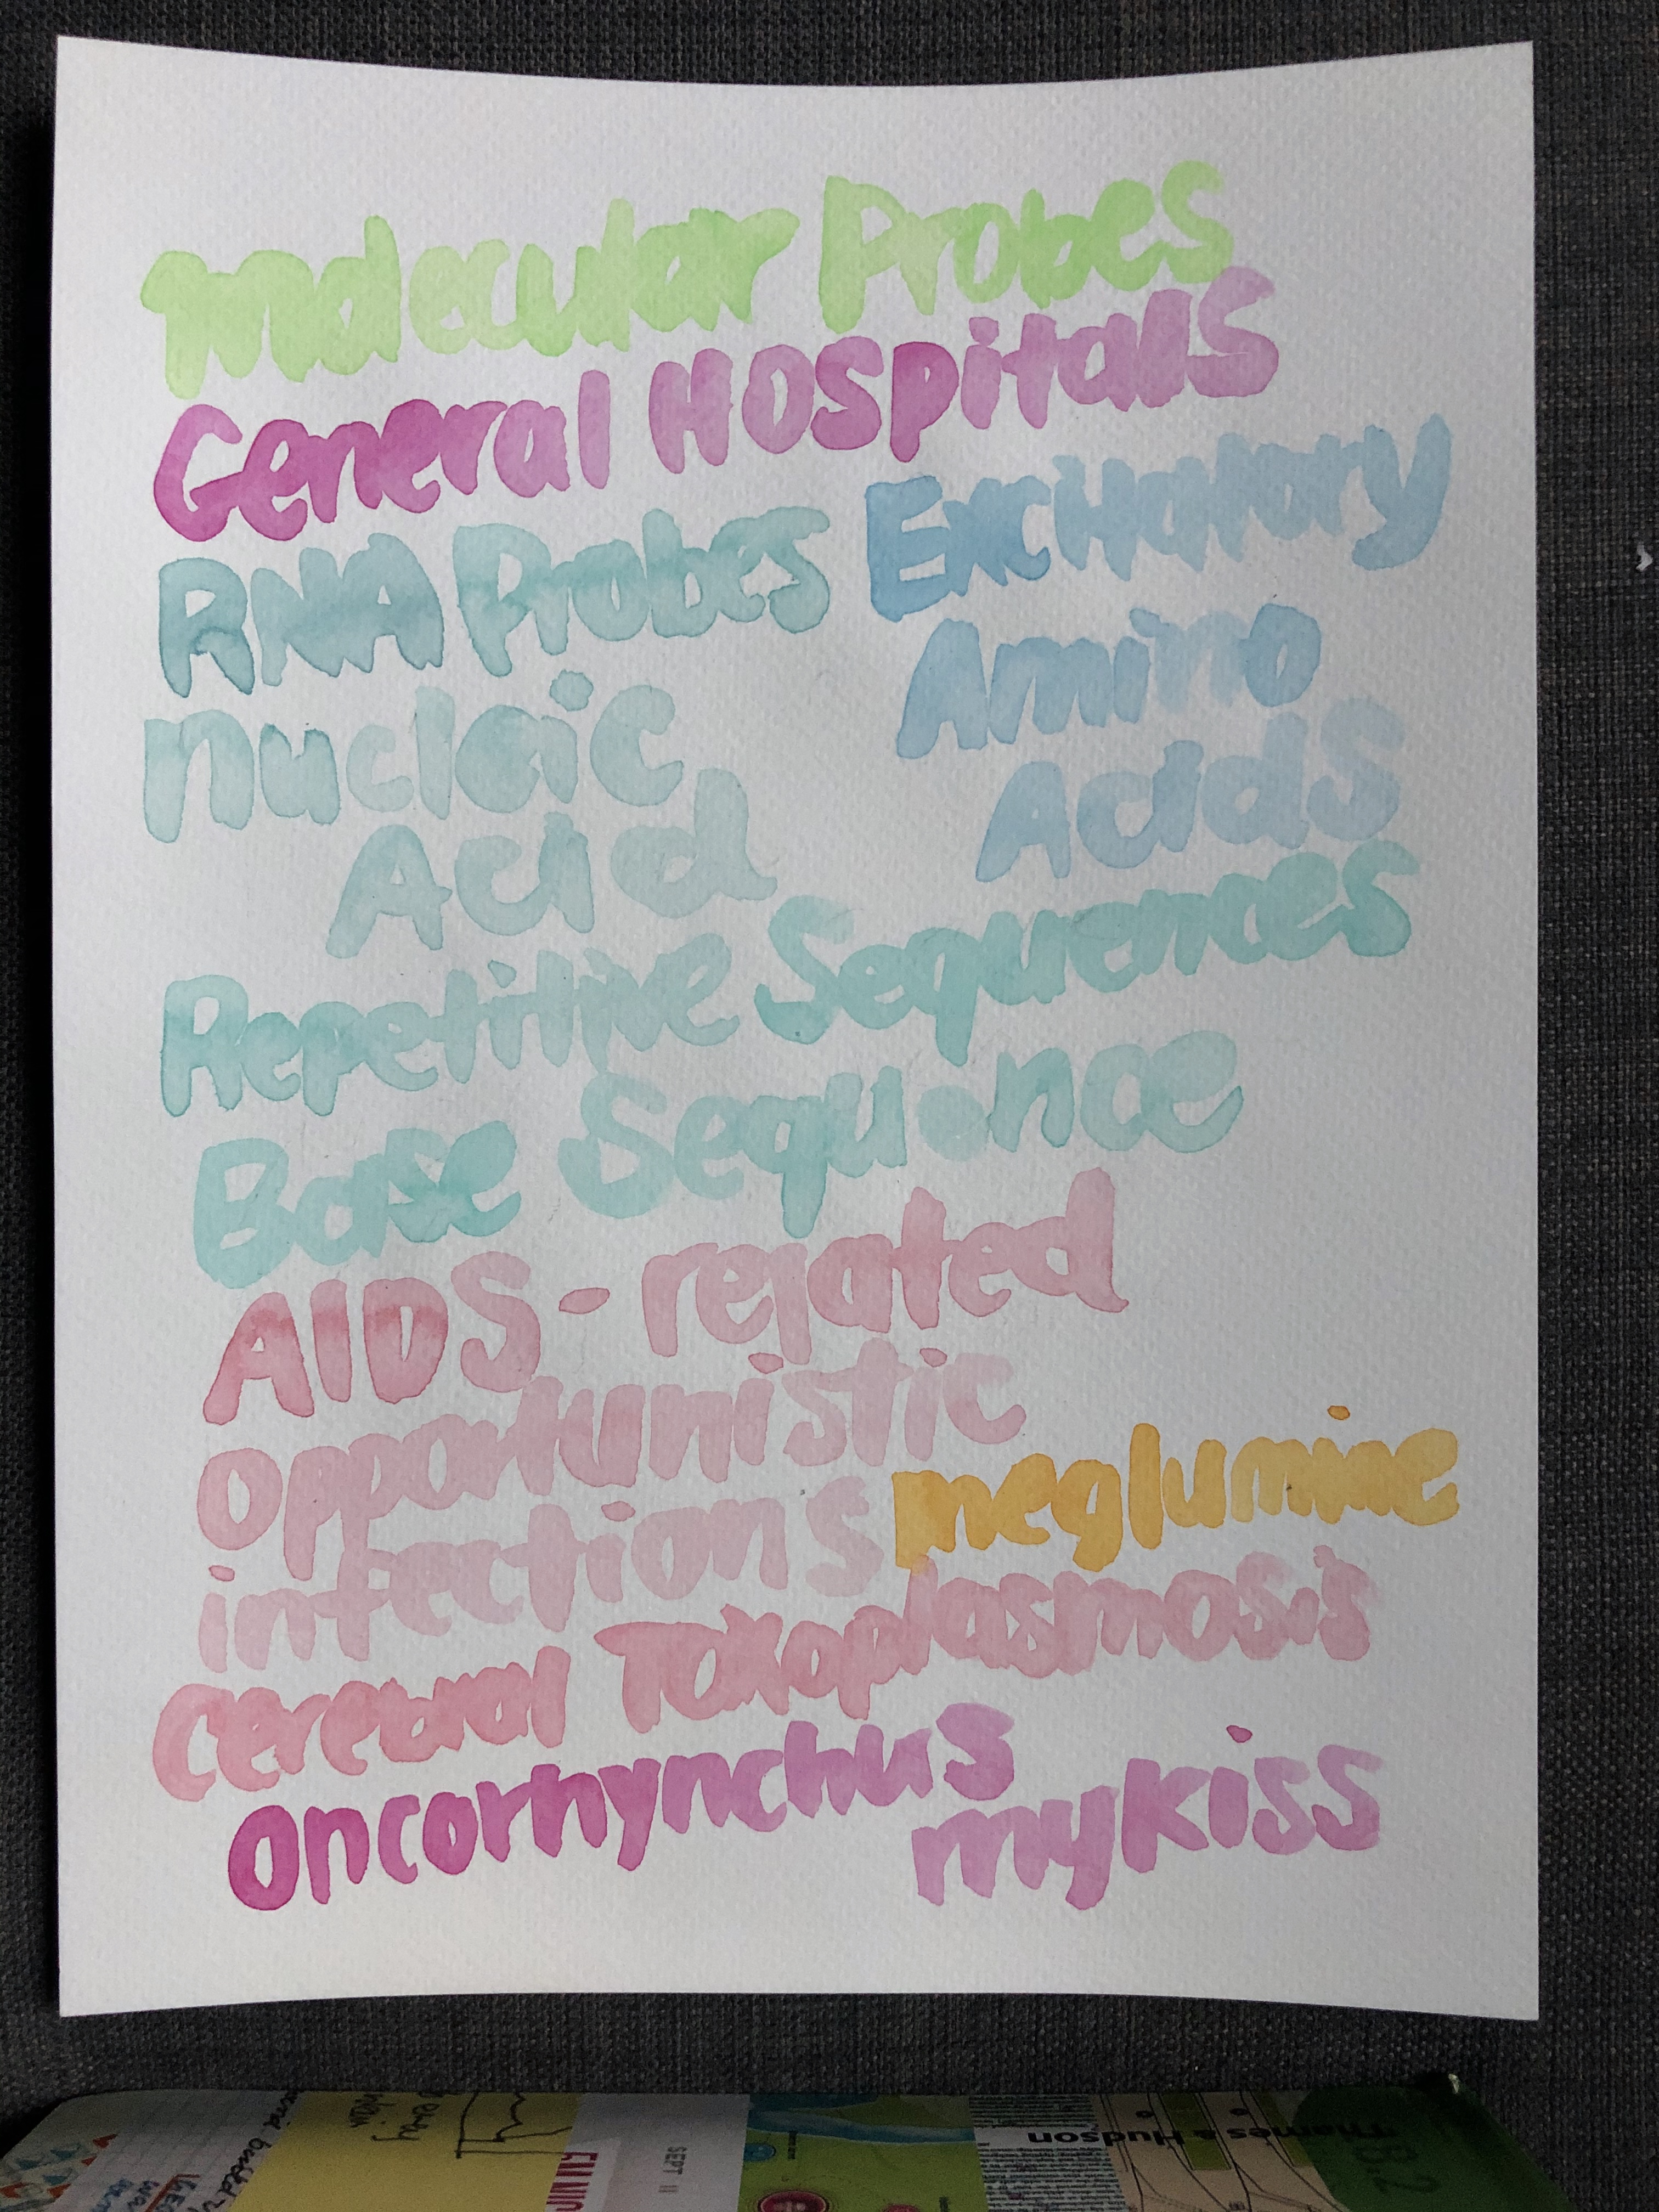 molecular Probes
General Hospitals
RNA Probes
Excitatory
Amino
Acids
nucleic
Acid
Repetitive Sequences
Base Sequence
AIDS-related
opportunistic
infections
meglumine
Cerebral Toxoplasmosis
oncorhynchus
mykiss
SEPT 11
Thames & Hudson